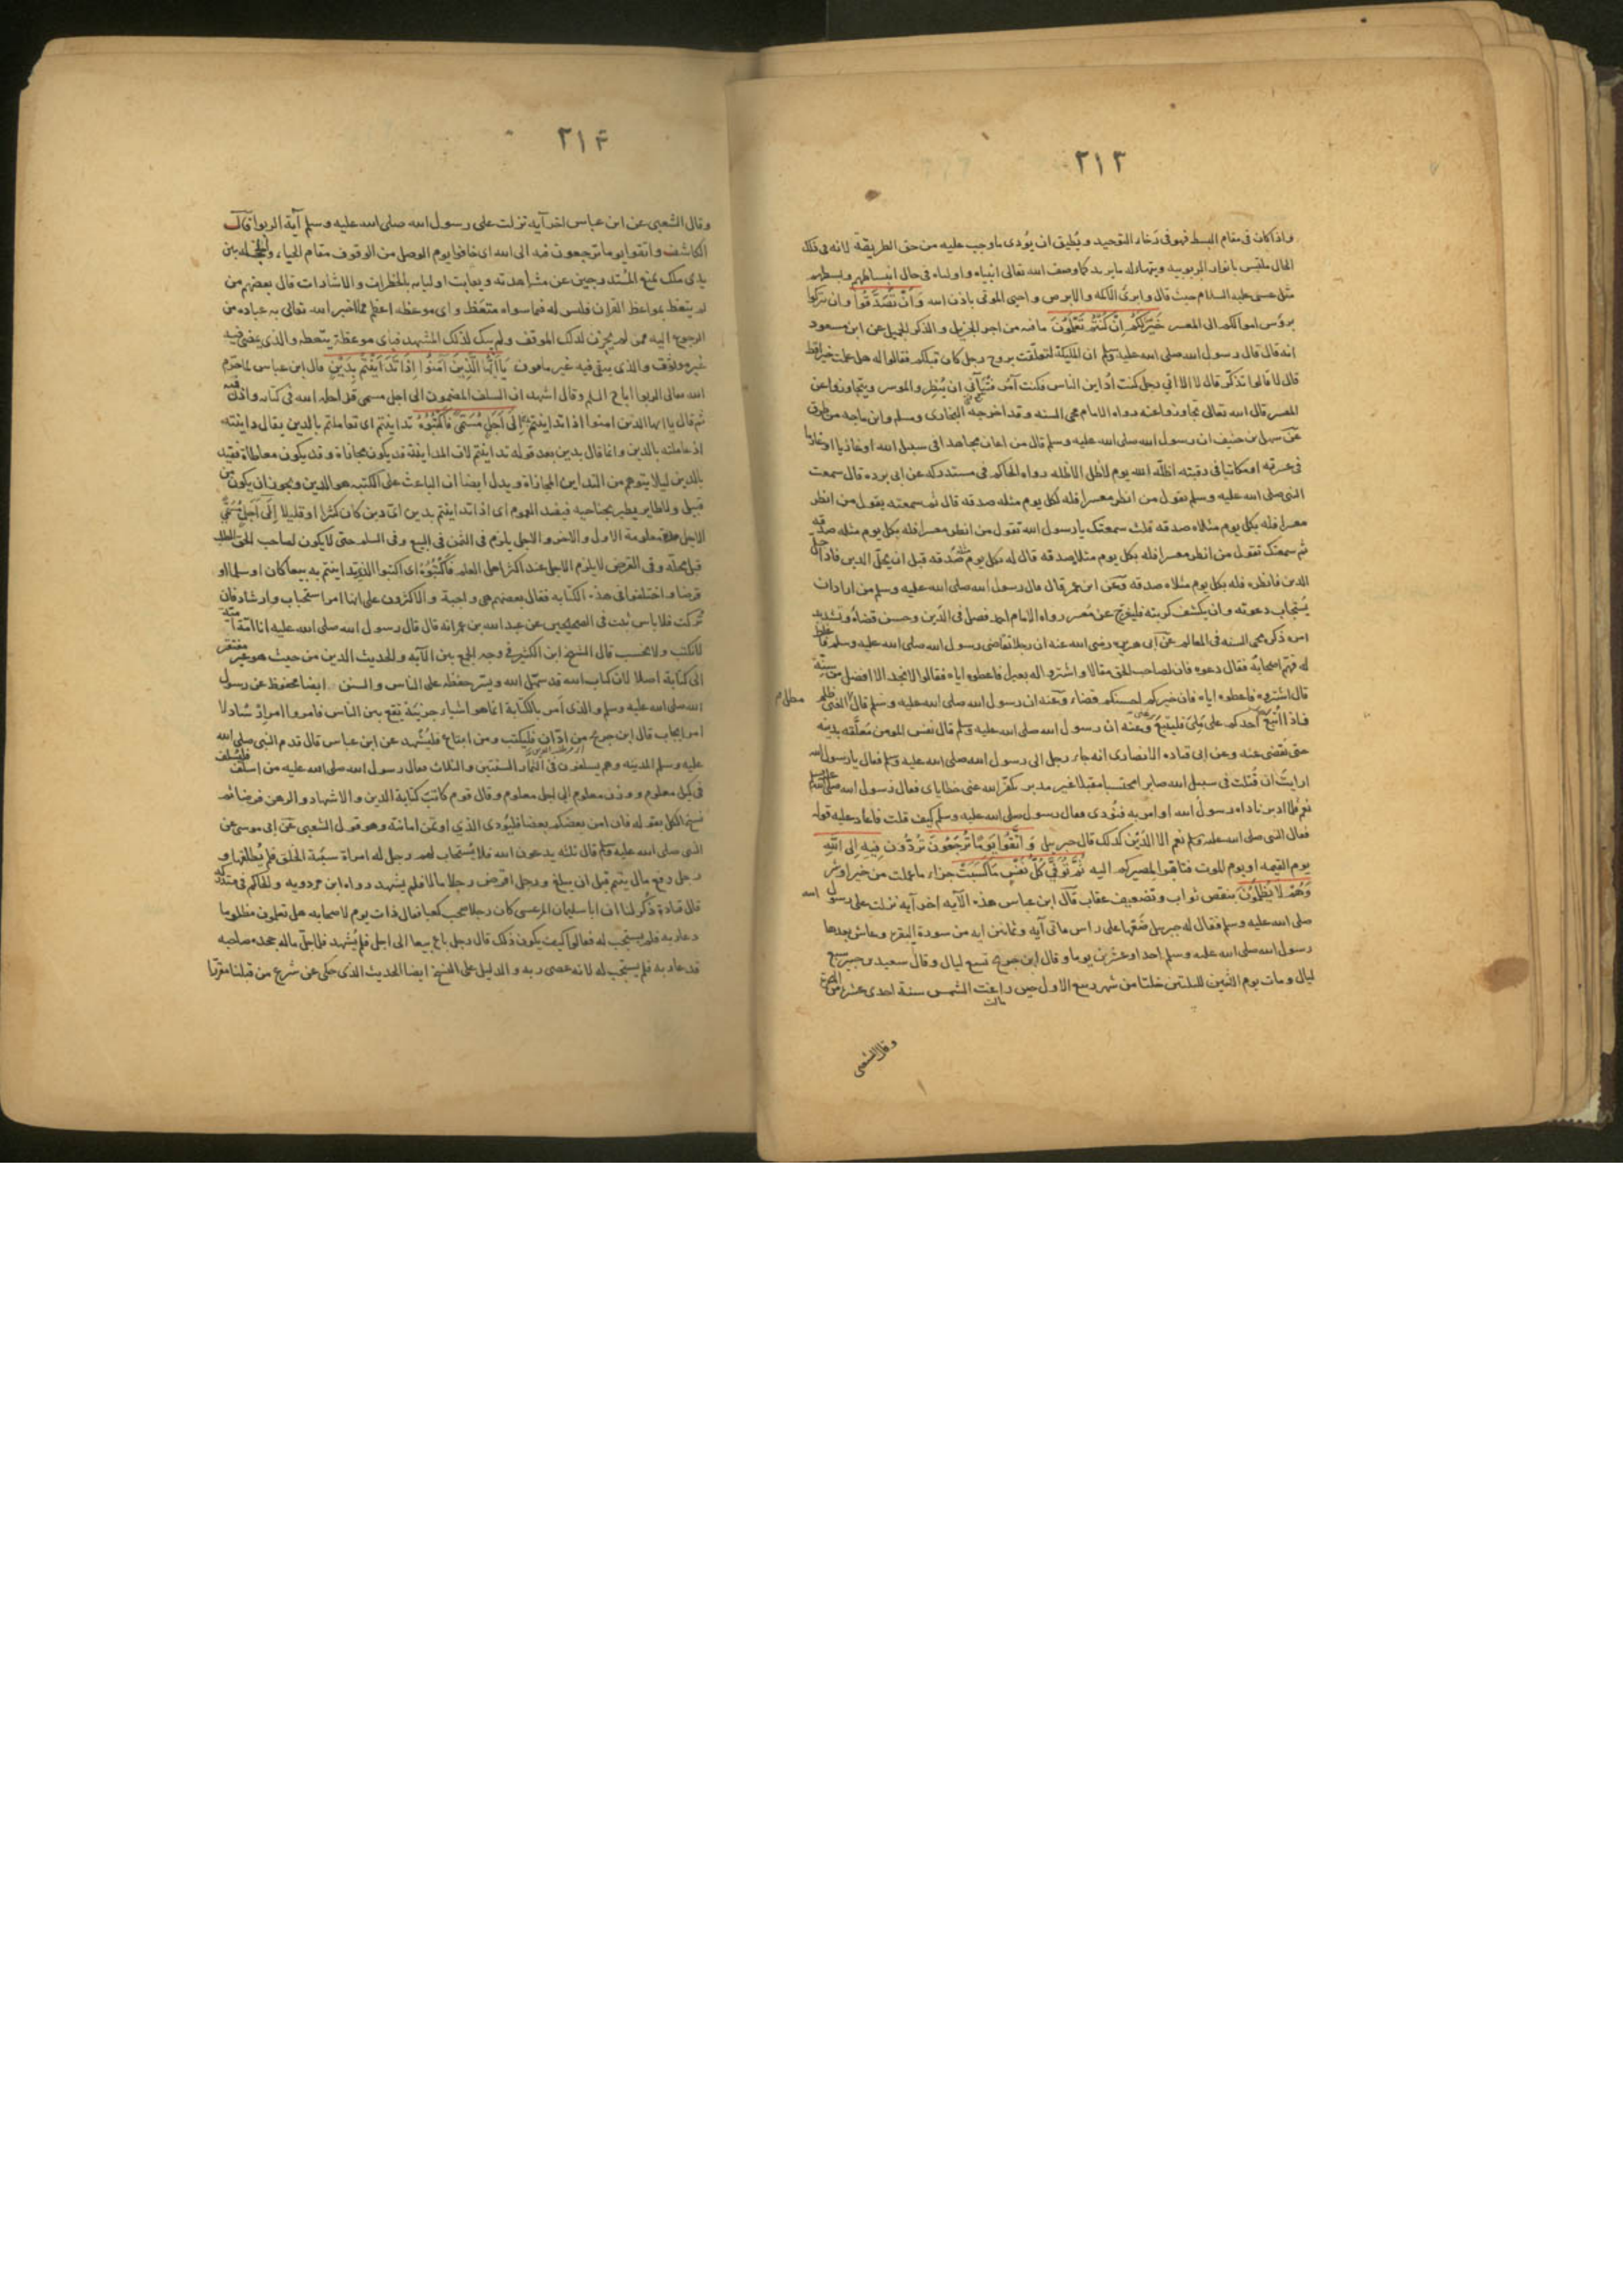 ٢١٣
واذا كان فى مقام البسط فهو فى التوحيد ويطيق ان يؤدى ما وجب عليه من حق الطريقة لانه فى ذلك
الحال ملتبس بانوار الربوبيه كما وصف الله تعالى انبياه واولياه فى حال انبساطهم وبسطهم
مثل عيسى عليه السلام حيث قال وابرئ الاكمه والابرص واحيى الموتى باذن الله وَاَنْ تَصَدَّقُوا وان تتركوا
بروس اموالكم الى المعسر خَيْرٌ لَكُمْ اِنْ كُنْتُمْ تَعْلَمُونَ ما فيه من اجر الجزيل والذكر الجميل عن ابن مسعود
انه قال قال رسول الله صلى الله عليه وسلم ان الملئكة لتعلقت بروح رجل كان قبلكم فقالوا له هل عملت خيرا قط
قال لا قالوا تذكر قال لا الا انى رجل كنت اداين الناس فكنت آمر فتيانى ان ينظروا الموسر ويتجاوزوا عن
المعسر قال الله تعالى تجاوزوا عنه رواه الامام محى السنه وقد اخرجه البخارى ومسلم وابن ماجه من طرق
عن سهل بن حنيف ان رسول الله صلى الله عليه وسلم قال من اعان مجاهدا فى سبيل الله او غازيا او غارما
فى عسرته او مكاتبا فى رقبته اظله الله يوم لا ظل الا ظله رواه الحاكم فى مستدركه عن ابى برده قال سمعت
النبى صلى الله عليه وسلم يقول من انظر معسرا فله لكل يوم مثله صدقه قال ثم سمعته يقول من انظر
معسرا فله بكل يوم مثلاه صدقه قلت سمعتك يا رسول الله تقول من انظر معسرا فله بكل يوم مثله صدقه
ثم سمعتك تقول من انظر معسرا فله بكل يوم مثلاه صدقه قال له بكل يوم مثله صدقه قبل ان يحل الدين فاذا حل
الدين فانظره فله بكل يوم مثلاه صدقه وعن ابن عمر قال قال رسول الله صلى الله عليه وسلم من اراد ان
يُستجاب دعوته وان يكشف كربته فليفرج عن معسر رواه الامام احمد فصل فى الدَّين وحسن قضاه وتشديد
امره ذكره محى السنه فى المعالم عن ابى هريره رضى الله عنه ان رجلا تقاضى رسول الله صلى الله عليه وسلم فاغلظ
له فهم اصحابه فقال دعوه فان لصاحب الحق مقالا واشتروا له بعيرا فاعطوه اياه فقالوا لا نجد الا افضل من سنه
قال اشتروه فاعطوه اياه فان خيركم احسنكم قضاء وعنه ان رسول الله صلى الله عليه وسلم قال مطل الغنى ظلم
فاذا اُتبع احدكم على ملئ فليتبع وعنه ان رسول الله صلى الله عليه وسلم قال نفس المومن معلقه بدينه
حتى يقضى عنه وعن ابى قتاده الانصارى انه جاء رجل الى رسول الله صلى الله عليه وسلم فقال يا رسول الله
ارايت ان قُتلت فى سبيل الله صابرا محتسبا مقبلا غير مدبر يكفر الله عنى خطاياى فقال رسول الله صلى الله عليه وسلم
نعم فلما ادبر ناداه رسول الله او امر به فنودى فقال رسول الله صلى الله عليه وسلم كيف قلت فاعاد عليه قوله
فقال النبى صلى الله عليه وسلم نعم الا الدَّيْن كذلك قال جبريل وَاتَّقُوا يَوْمًا تُرْجَعُونَ تُرَدُّون فِيهِ اِلَى اللّٰهِ
يوم القيمه او يوم الموت فتاهبوا لمصيركم اليه ثُمَّ تُوَفَّى كُلُّ نَفْسٍ مَا كَسَبَتْ جزاء ما عملت من خير او شر
وَهُمْ لَا يُظْلَمُونَ بنقص ثواب وتضعيف عقاب قال ابن عباس هذه الآيه اخر آيه نزلت على رسول الله
صلى الله عليه وسلم فقال له جبريل ضعها على راس مائتى آيه وثمانين ايه من سورة البقره وعاش بعدها
رسول الله صلى الله عليه وسلم احدا وعشرين يوما وقال ابن جريج تسع ليال وقال سعيد بن جبير سبع
ليال ومات يوم الاثنين لليلتين خلتا من شهر ربيع الاول حين زاغت الشمس سنة احدى عشر من الهجرة
وقال الشعبى
٢١۴
وقال الشعبى عن ابن عباس اخر آيه نزلت على رسول الله صلى الله عليه وسلم آية الربوا قال
الكاشف واتقوا يوما ترجعون فيه الى الله اى خافوا يوم الوصل من الوقوف مقام الحياء والخجله بين
يدى ملك يمنع المستدرجين عن مشاهدته ويعاتب اولياءه بالخطرات والاشارات قال بعضهم من
لم يتعظ بمواعظ القران فليس له فيما سواه متعظ واى موعظه اعظم مما اخبر الله تعالى به عباده من
الرجوع اليه فمن لم يحزن لذلك الموقف ولم يبك لذلك المشهد فباى موعظة يتعظ والذى يفنى فيه
غير موثوق والذى يبقى فيه غير مامون يَا اَيُّهَا الَّذِينَ آمَنُوا اِذَا تَدَايَنْتُمْ بِدَيْنٍ قال ابن عباس لما حرم
الله تعالى الربوا اباح السلم وقال اشهد ان السلف المضمون الى اجل مسمى قد احله الله فى كتابه واذن فيه
ثم قال يا ايها الذين امنوا اذا تداينتم اِلَى اَجَلٍ مُسَمًّى فَاكْتُبُوهُ تداينتم اى تعاملتم بالدين يقال داينته
اذا عاملته بالدين وانما قال بدين بعد قوله تداينتم لان المداينة قد يكون مجازاة وقد يكون معاطاة فقيد
بالدين ليلا يتوهم من التداين المجازاة ويدل ايضا ان الباعث على الكتبه هو الدين ويجوز ان يكون من
قبيل ولا طاير يطير بجناحيه فيفيد العموم اى اذا تداينتم بدين اىّ دين كان كثيرا او قليلا اِلَى اَجَلٍ مُسَمًّى
الاجل مدة معلومة الاول والاخر والاجل يلزم فى الثمن فى البيع وفى السلم حتى لا يكون لصاحب الحق الطلب
قبل محله وفى القرض لا يلزم الاجل عند اكثر اهل العلم فَاكْتُبُوهُ اى اكتبوا الذى تداينتم به بيعا كان او سلما او
قرضا واختلفوا فى هذه الكتابه فقال بعضهم هى واجبة والاكثرون على انها امر استحباب وارشاد فان
تُركت فلا باس ثبت فى الصحيحين عن عبد الله بن عمر انه قال قال رسول الله صلى الله عليه انا امّة اميّة
لا نكتب ولا نحسب قال الشيخ ابن الكثير فى وجه الجمع بين الآيه والحديث الدين من حيث هو غير مفتقر
الى كتابة اصلا لان كتاب الله قد سهّل الله ويسّر حفظه على الناس والسنن ايضا محفوظ عن رسول
الله صلى الله عليه وسلم والذى امر بالكتابة انما هو اشياء جزئية تقع بين الناس فامروا امر ارشاد لا
امر ايجاب قال ابن جريج من ادّان فليكتب ومن ابتاع فليُشهد عن ابن عباس قال قدم النبى صلى الله
عليه وسلم المدينه وهم يسلفون فى الثمار السنتين والثلاث فقال رسول الله صلى الله عليه من اسلف فليسلف
فى كيل معلوم ووزن معلوم الى اجل معلوم وقال قوم كانت كتابة الدين والاشهاد والرهن فرضا ثم
نسخ الكل بقوله فان امن بعضكم بعضا فليؤدى الذى اوتمن امانته وهو قول الشعبى عن ابى موسى عن
النبى صلى الله عليه وسلم قال ثلثه يدعون الله فلا يُستجاب لهم رجل له امراة سيّئة الخلق فلم يُطلقها و
رجل دفع مال يتيم قبل ان يبلغ ورجل اقرض رجلا مالا فلم يشهد رواه ابن مردويه والحاكم فى مستدركه
قال قتادة ذُكر لنا ان ابا سليمان المرعشى كان رجلا صحب كعبا فقال ذات يوم لاصحابه هل تعلمون مظلوما
دعا ربه فلم يستجب له فقالوا كيف يكون ذلك قال رجل باع بيعا الى اجل فلم يُشهد فلما حلّ ماله جحده صاحبه
فدعا ربه فلم يستجب له لانه عصى ربه والدليل على النسخ ايضا الحديث الذى حكى عن شرع من قبلنا مقررا